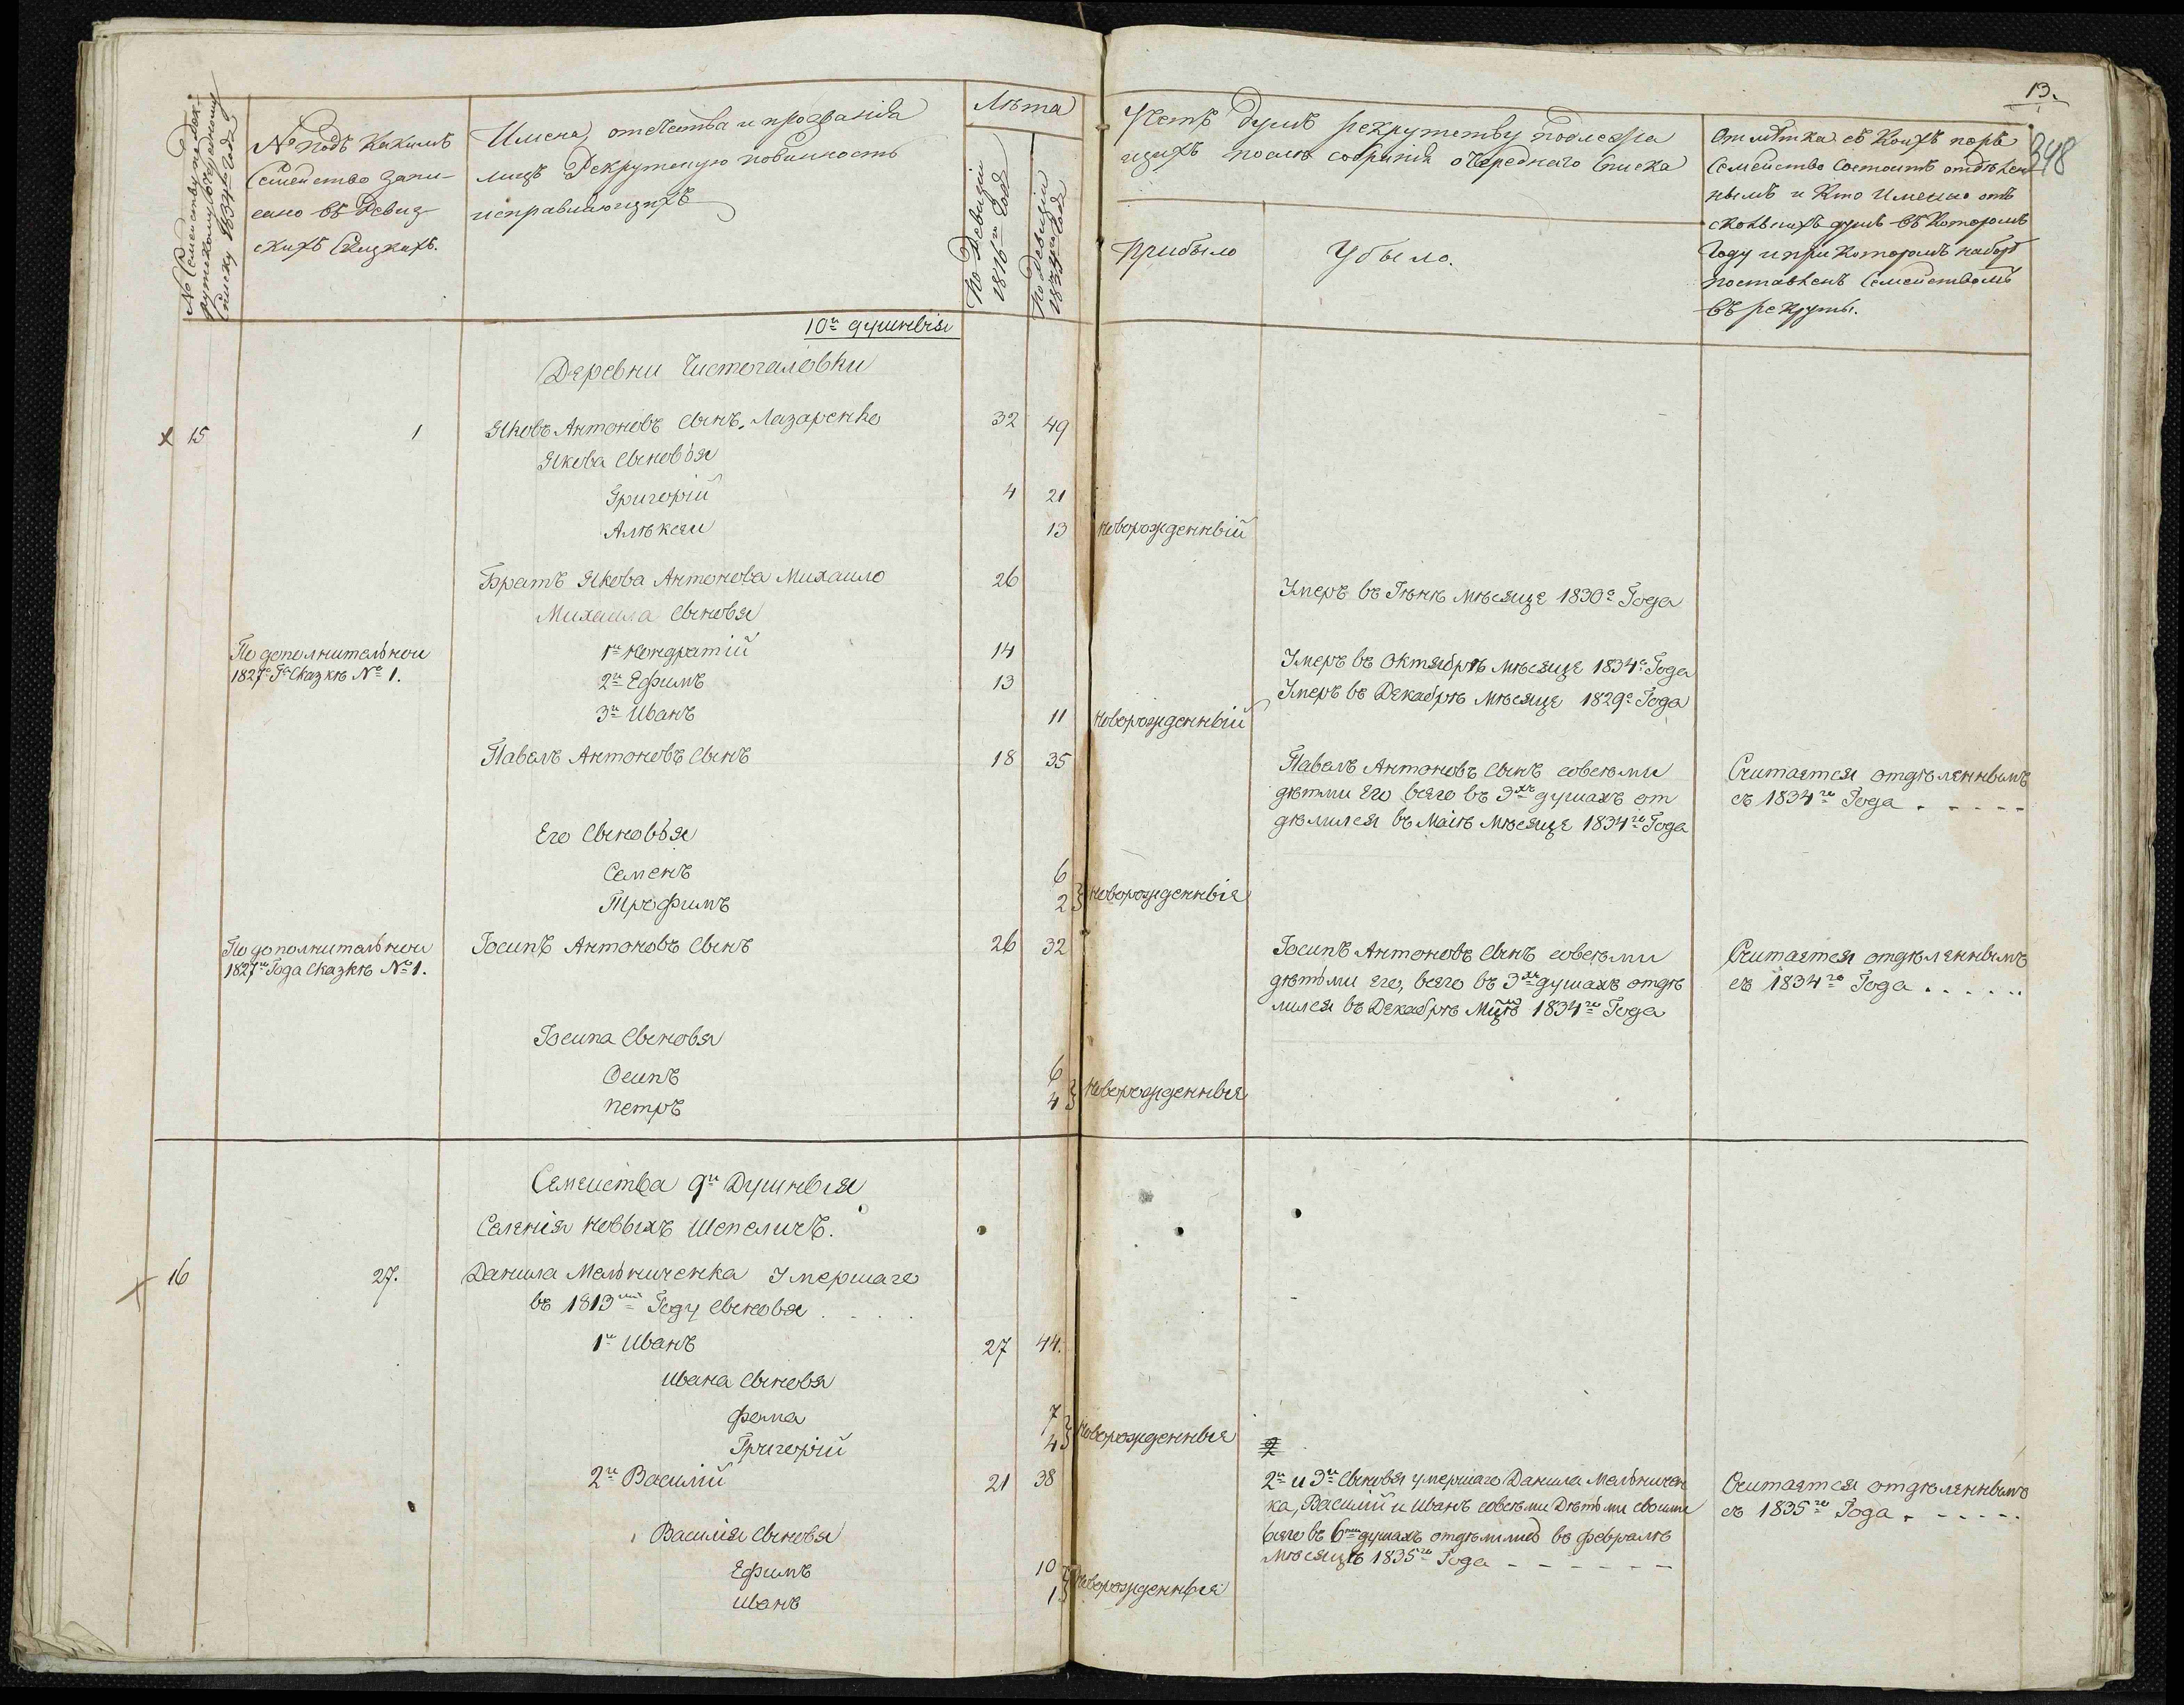 13.
348
№ Семейству по рек-
рутскому очередному
списку 1834го Года
№ подъ какимъ
Семейство запи-
сано въ Ревиз-
скихъ Сказкахъ.
Имена, отечества и прозванія
лицъ Рекрутскую повинность
исправляющихъ
Лѣта
По Ревизіи
1816го Года
По Ревизіи
1834го Года
Счетъ душъ рекрутству подлежа
щихъ послѣ собранія очереднаго Списка
Прибыло
Убыло.
Отмѣтка съ коихъ поръ
Семейство состоитъ отдѣлен
нымъ и кто Именно отъ
сколькихъ душъ въ которомъ
Году и при которомъ наборѣ
поставленъ Семействомъ
въ рекруты.
10и душныя
Деревни Чистогаловки
х 15
1
Яковъ Антоновъ Сынъ, Лазаренко
32
49
Якова Сыновья
Григорій
4
21
Алѣксеи
13
новорожденный
Братъ Якова Антонова Михаило
26
Умеръ въ Іюнѣ мѣсяце 1830го Года
Михаила Сыновя
По дополнительнои
1827го Го Сказкѣ № 1.
1й Кондратій
14
Умеръ въ Октябрѣ мѣсяце 1834го Года
2й Ефимъ
13
Умеръ въ Декабрѣ мѣсяце 1829го Года
3й Иванъ
11
новорожденный
Павелъ Антоновъ Сынъ
18
35
Павелъ Антоновъ Сынъ совсѣми
дѣтми его всего въ 3хъ душахъ от
дѣлился въ Маіѣ мѣсяце 1834го Года
Считается отдѣленнымъ
съ 1834го Года . - - - -
Его Сыновья
Семенъ
6
Трофимъ
2
новорожденныя
По дополнительнои
1827го Года Сказкѣ № 1.
Іосипъ Антоновъ Сынъ
26
32
Іосипъ Антоновъ Сынъ совсѣми
дѣтьми его, всего въ 3хъ душахъ отдѣ
лился въ Декабрѣ Мцѣ 1834го Года
Считается отдѣленнымъ
съ 1834го Года . . . . . .
Іосипа Сыновя
Осипъ
6
Петръ
4
Новорожденныя
Семеиства 9и Душныя
Селенія Новыхъ Шепеличъ.
х 16
27.
Данила Мельниченка Умершаго
въ 1813мъ Году Сыновя . . . .
1й Иванъ
27
44.
Ивана Сыновя
Фома
7
Григорій
4
Новорожденныя
2й Василій
21
38
2й и 3й Сыновя умершаго Данила Мельничен
ка, Василий и Иванъ совсѣми Дѣтьми своими
всего въ 6ти душахъ отдѣлились въ февралѣ
мѣсяцѣ 1835го Года - - - - - -
Считается отдѣленнымъ
съ 1835го Года . - - - - .
Василія Сыновя
Ефимъ
10
Иванъ
1
Новорожденныя